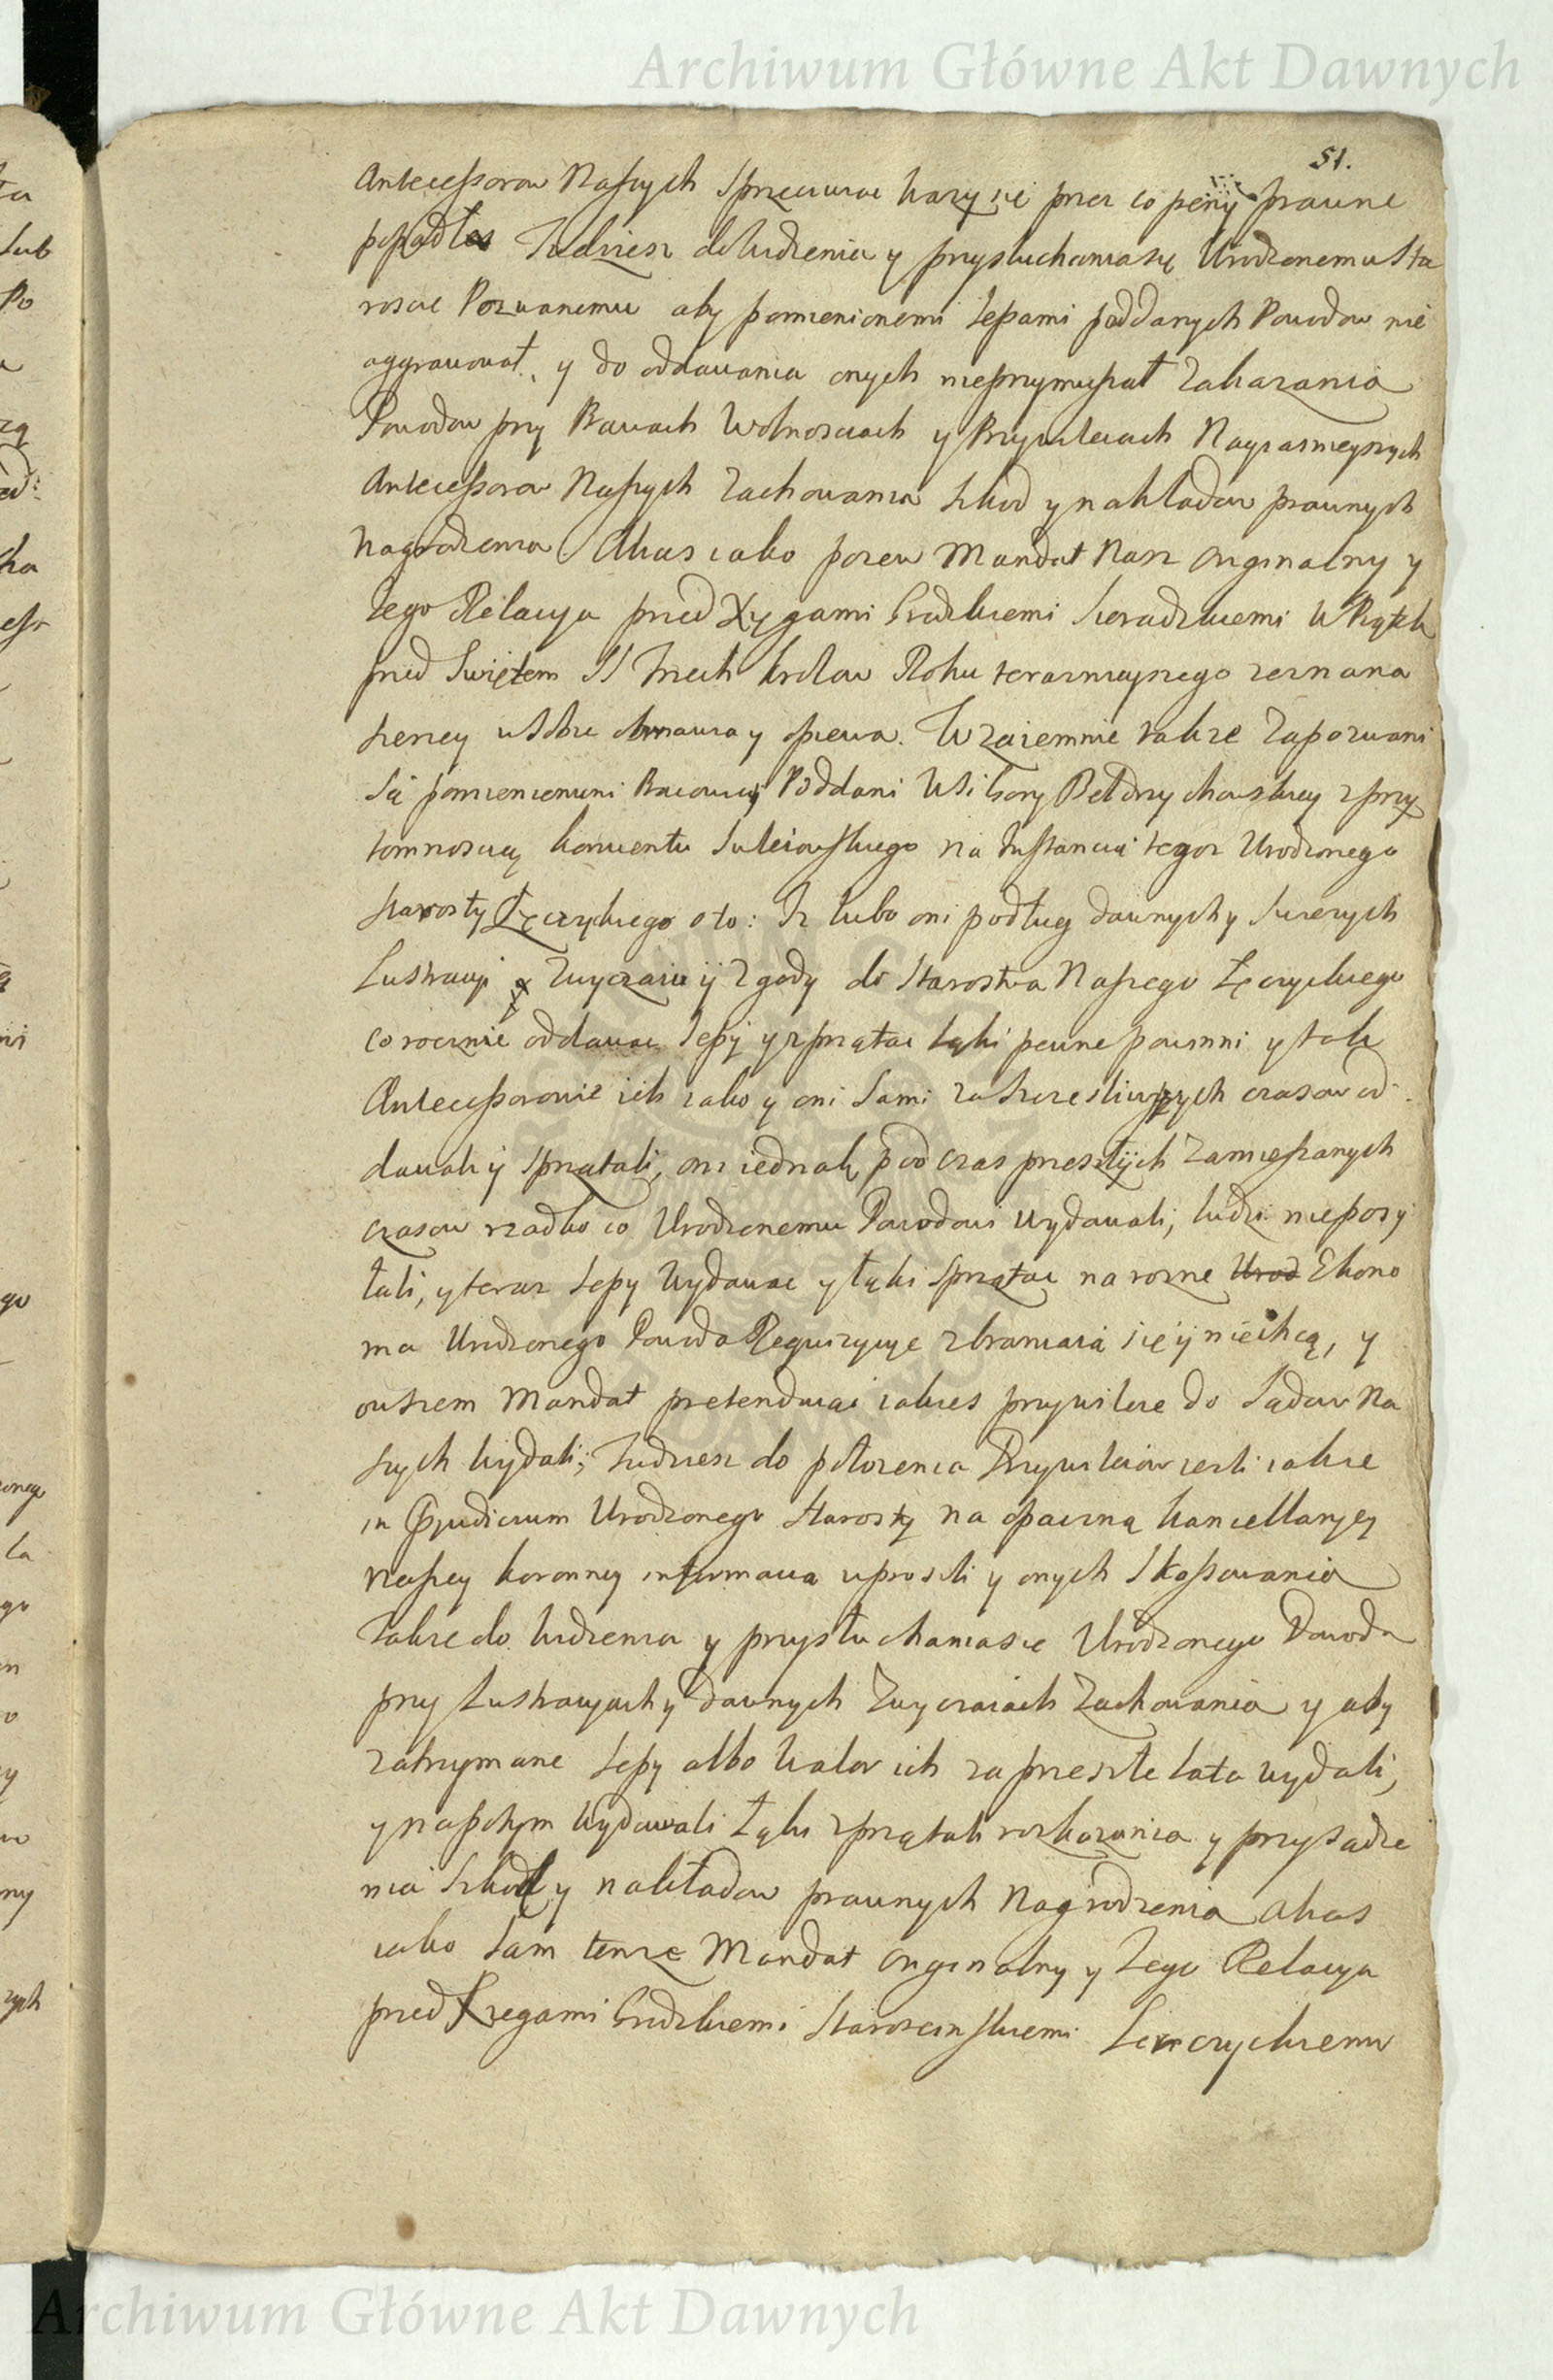 Archiwum Główne Akt Dawnych
51.
Antecessorow Naszych sprzeciwiac wazysz się przez co peny prawne
popadłes Tudziesz do Widzenia y przysłuchaniasię Urodzonemu Sta
roscie Pozwanemu aby pomienionemi Sepami poddanych Powodow nie
aggrawował, y do oddawania onych nieprzymuszał Zakazania
Powodow przy Prawach Wolnosciach y Przywileiach Nayiasnieyszych
Antecessorow Naszych Zachowania Szkod y nakładow prawnych
Nagrodzenia Alias iako pozew Mandat Nasz Orginalny y
Iego Relacya przed Xięgami Grodzkiemi Sieradzkiemi W Piątek
przed Swiętem SS Trzech Krolow Roku teraznieyszego zeznana
szerzey w Sobie obmawia y opiewa. Wzaiemnie takze Zapozwani
Są pomienieni Pracowici Poddani Wsi Gory Bełdrzychowskiey z przy
tomnoscią konwentu Suleiowskiego na Instancią tegoz Urodzonego
Starosty Łęczyckiego oto: Iz lubo oni podług dawnych y swiezych
Lustracyi y Zwyczaiu ÿ Zgody do Starostwa Naszego Łęczyckiego
corocznie oddawac Sepÿ y zprzątac Łąki pewne powinni y tak
Antecessorowie ich iako y oni Sami za Szczesliwszych czasow od
dawali ÿ sprzątali, oni iednak pod czas przeszłÿch Zamieszanych
czasow rzadko co Urodzonemu Powodowi Wydawali, ludzi nieposÿ
łali, y teraz Sepy Wydawac y łąki sprzątac na rozne Urod Ekono
ma Urodzonego Powoda Requizycye zbraniaią się ÿ niechcą, y
owszem Mandat pretenduiąc iakies przywileie do Sądow Na
szych Wydali; Tudziesz do połozenia Przywileiow iesli iakie
in Prejudicium Urodzonego Starosty na opaczną kancellaryey
Naszey koronney informacią uprosili y onych Skassowania
Takze do Widzenia y przysłuchaniasie Urodzonego Powoda
przy Lustracyach y dawnych Zwyczaiach Zachowania y aby
zatrzymane Sepy albo Walor ich za przeszłe lata wydali,
y napotym Wydawali Łąki zprzątali rozkazania y przysądze
nia Szkod y nakładow prawnych Nagrodzenia alias
iako Sam tenze Mandat Orginalny y Iego Relacya
przed Xięgami Grodzkiemi Staroscinskiemi Łęczyckiemi
Archiwum Główne Akt Dawnych